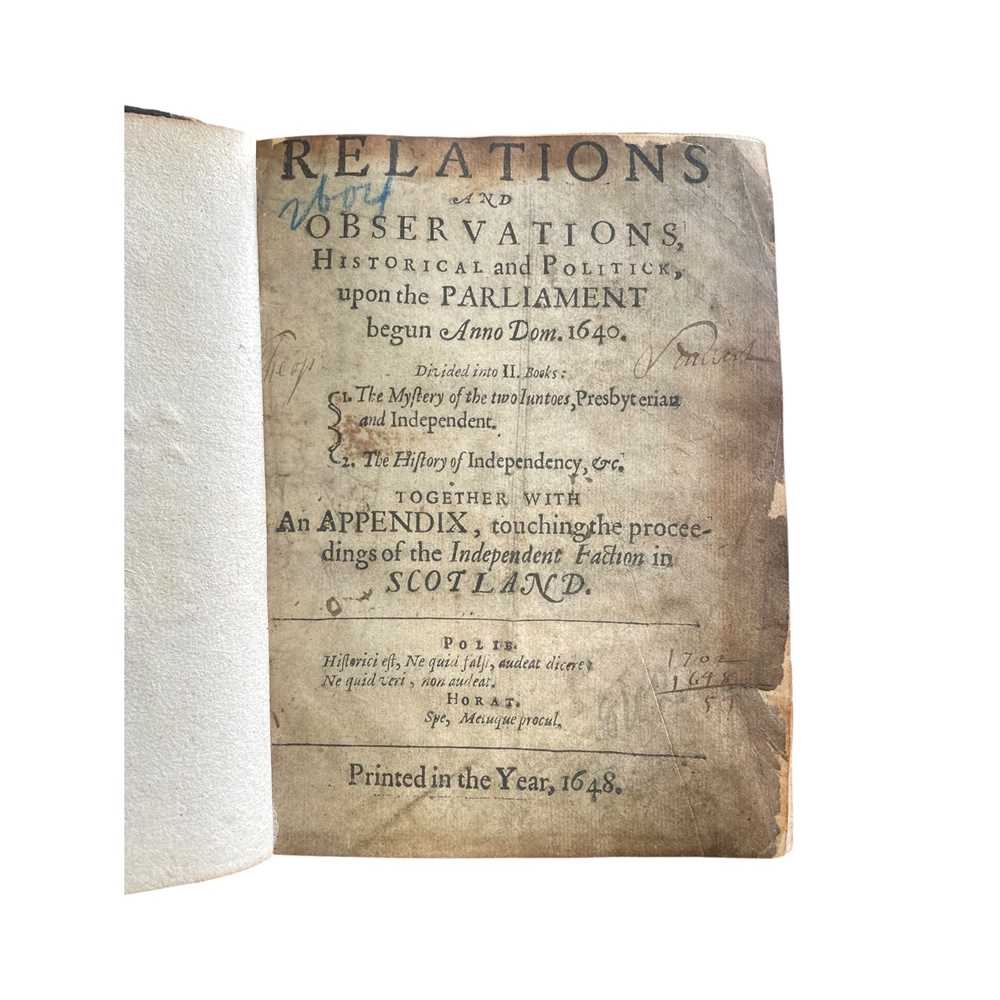 RELATIONS
AND
OBSERVATIONS,
HISTORICAL and POLITICK,
upon the PARLIAMENT
begun Anno Dom. 1640.
Divided into II. Books:
1. The Myſtery of the two Iuntoes, Presbyterian
and Independent.
2. The Hiſtory of Independency, &c.
TOGETHER WITH
An APPENDIX, touching the procee-
dings of the Independent Faction in
SCOTLAND.
POLIB.
Hiſtorici eſt, Ne quid falſi, audeat dicere;
Ne quid veri, non audeat.
HORAT.
Spe, Metuque procul.
1702
1648
Printed in the Year, 1648.